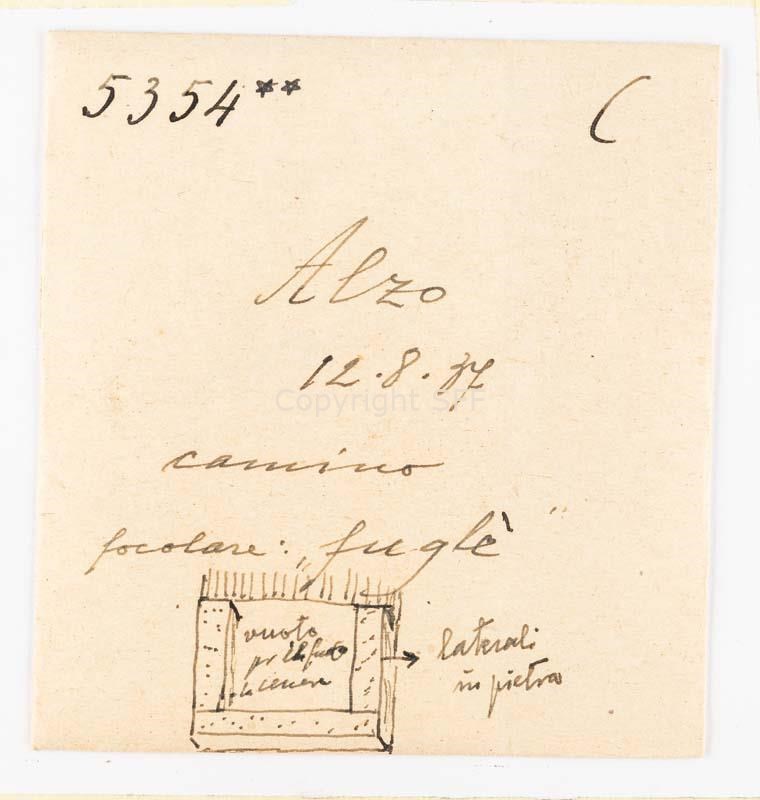 5354** C
Alzo
12.8.37
Copyright SPF
camino
focolare: „fuglè"
vuoto
pr il fuoco
la cenere
laterali
in pietra